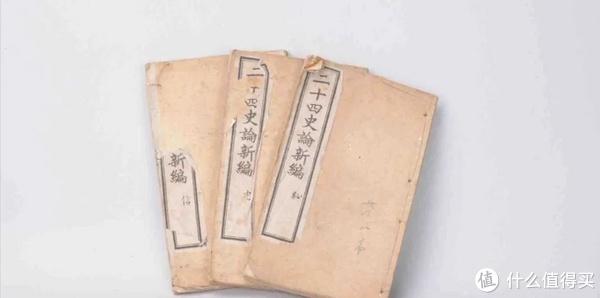 新編
二十四史論新編
二十四史論新編
值 什么值得买